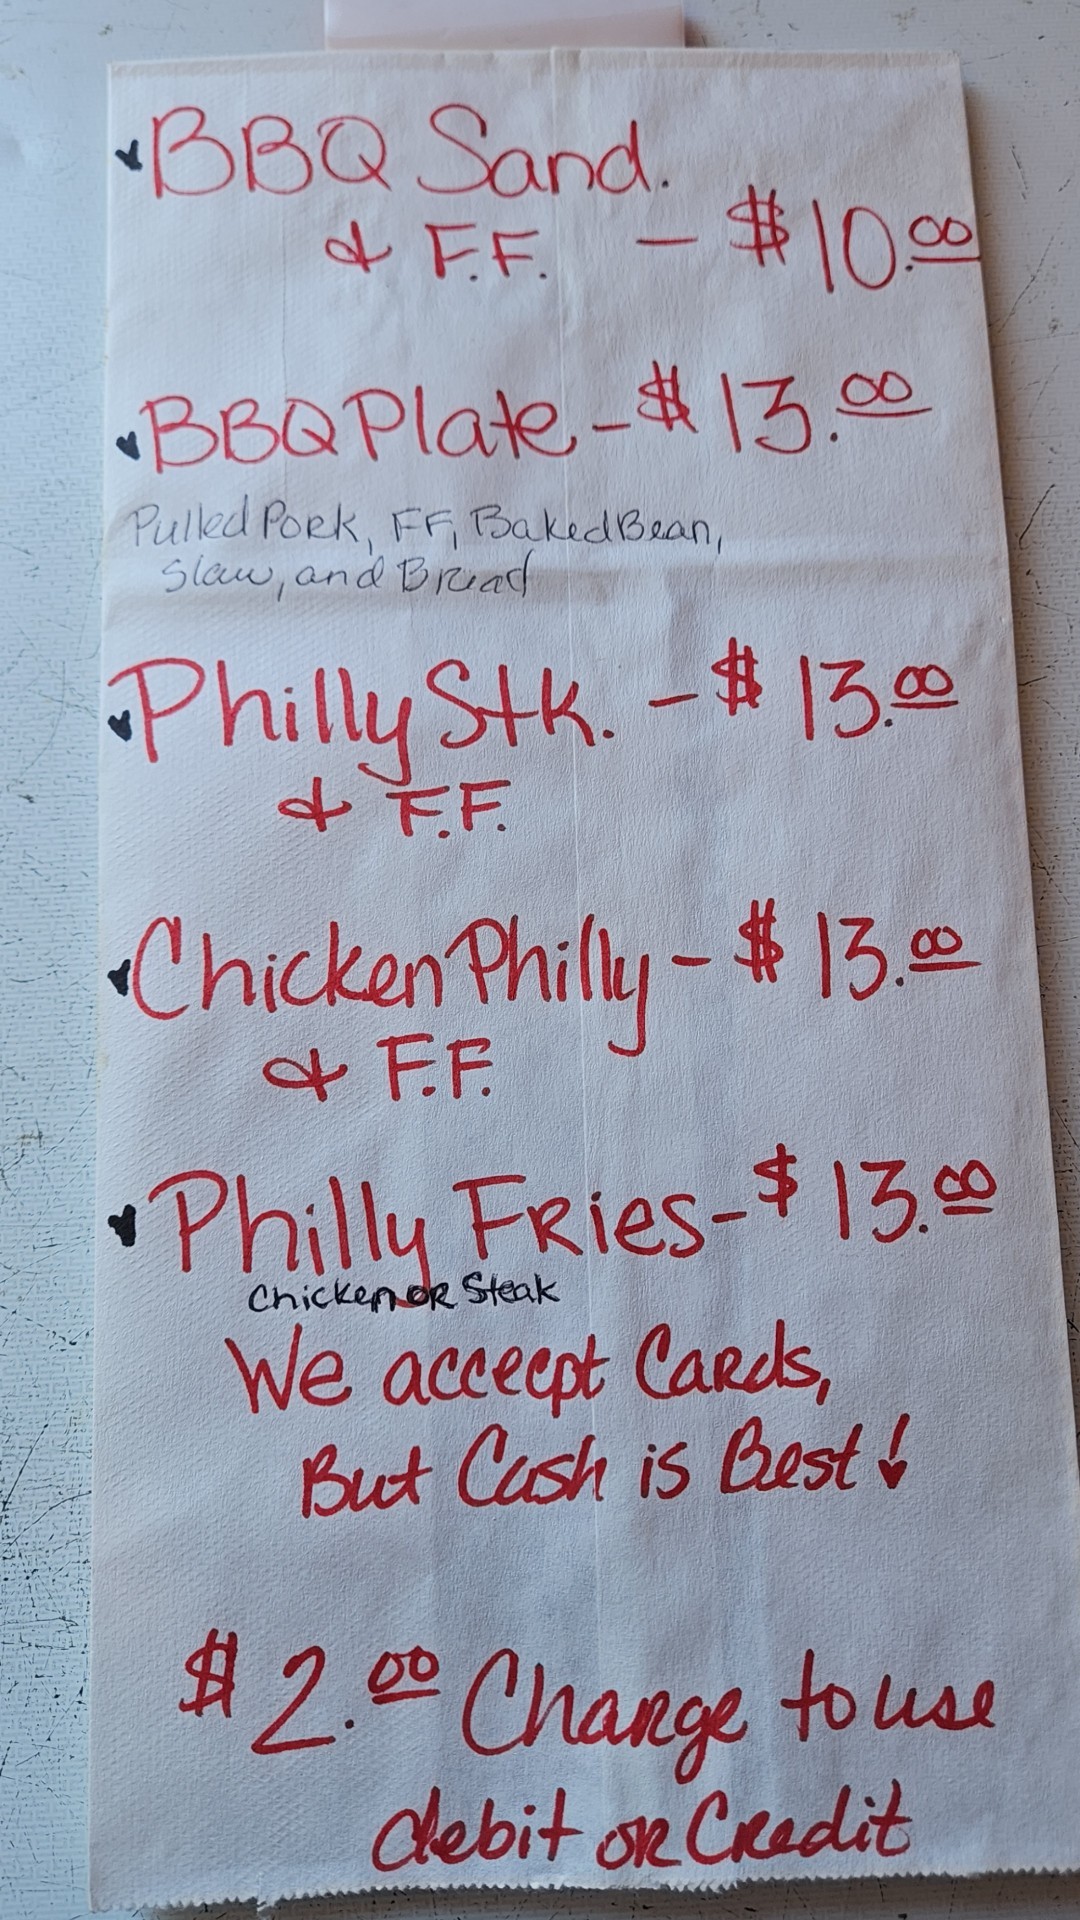 BBQ Sand.
& F.F. - $10.00
BBQ Plate - $13.00
Pulled Pork, FF, Baked Bean,
Slaw, and Bread
Philly Stk. - $13.00
& F.F.
Chicken Philly - $13.00
& F.F.
Philly Fries - $13.00
Chicken or Steak
We acceept Cards,
But Cash is Best!
$2.00 Change to use
debit or Credit